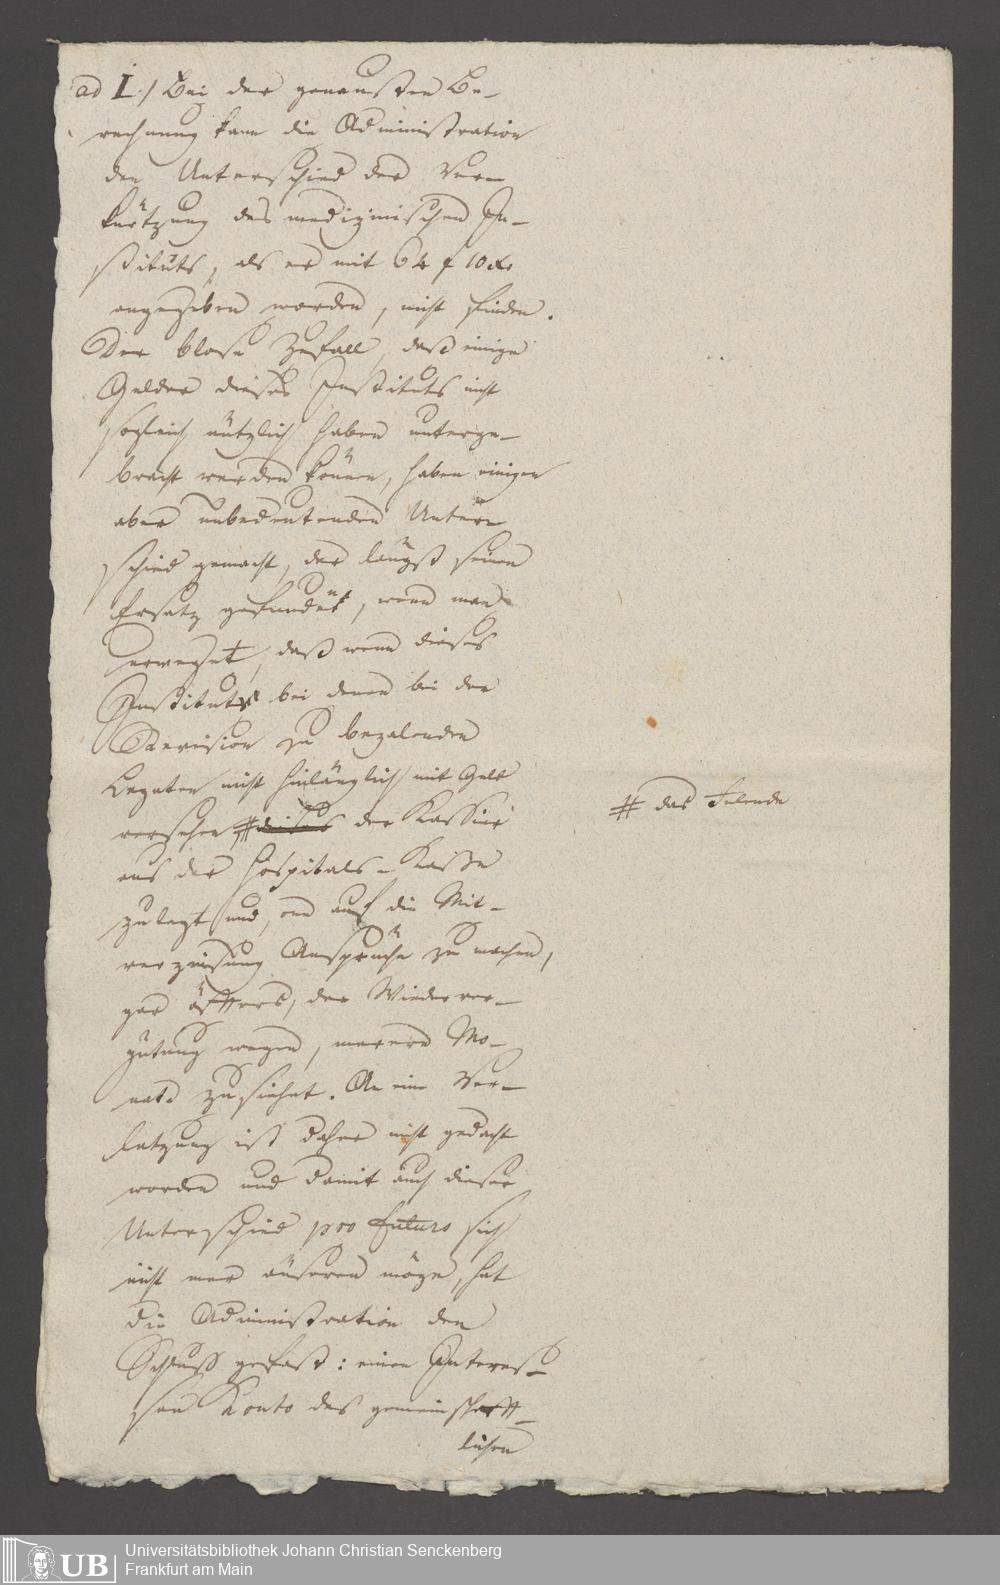 ad I./ Bei der genausten Be-
rechnung kann die Administration
den Unterschied der Ver-
kürtzung des medizinischen In-
stituts, als er mit 64 f 10 xr
angegeben worden, nicht finden.
Der blose Zufall, daß einige
Gelder dieses Instituts nicht
sogleich nützlich haben unterge-
bracht werden können, haben einigen
aber unbedeutenden Unter-
schied gemacht, der längst seinen
Ersatz gefunden, wenn man
erweget, daß wenn dieses
Institut bei denen bei der
Revision zu bezalenden
Legaten nicht hinlänglich mit Geld
versehen # der Kassier
aus der Hospitals-Kasse
zulegt und, one auf die Mit-
verzinsung Ansprüche zu machen,
gar öfters, der Wiederver-
gütung wegen, merere Mo-
nate zusiehet. An eine Ver-
letzung ist daher nicht gedacht
worden und damit auch dieser
Unterschied pro futuro sich
nicht mer äuseren möge, hat
die Administration den
Schluß gefaßt: einen Interes-
sen Konto des gemeinschaft-
lichen
# das Felende
UB Universitätsbibliothek Johann Christian Senckenberg
Frankfurt am Main